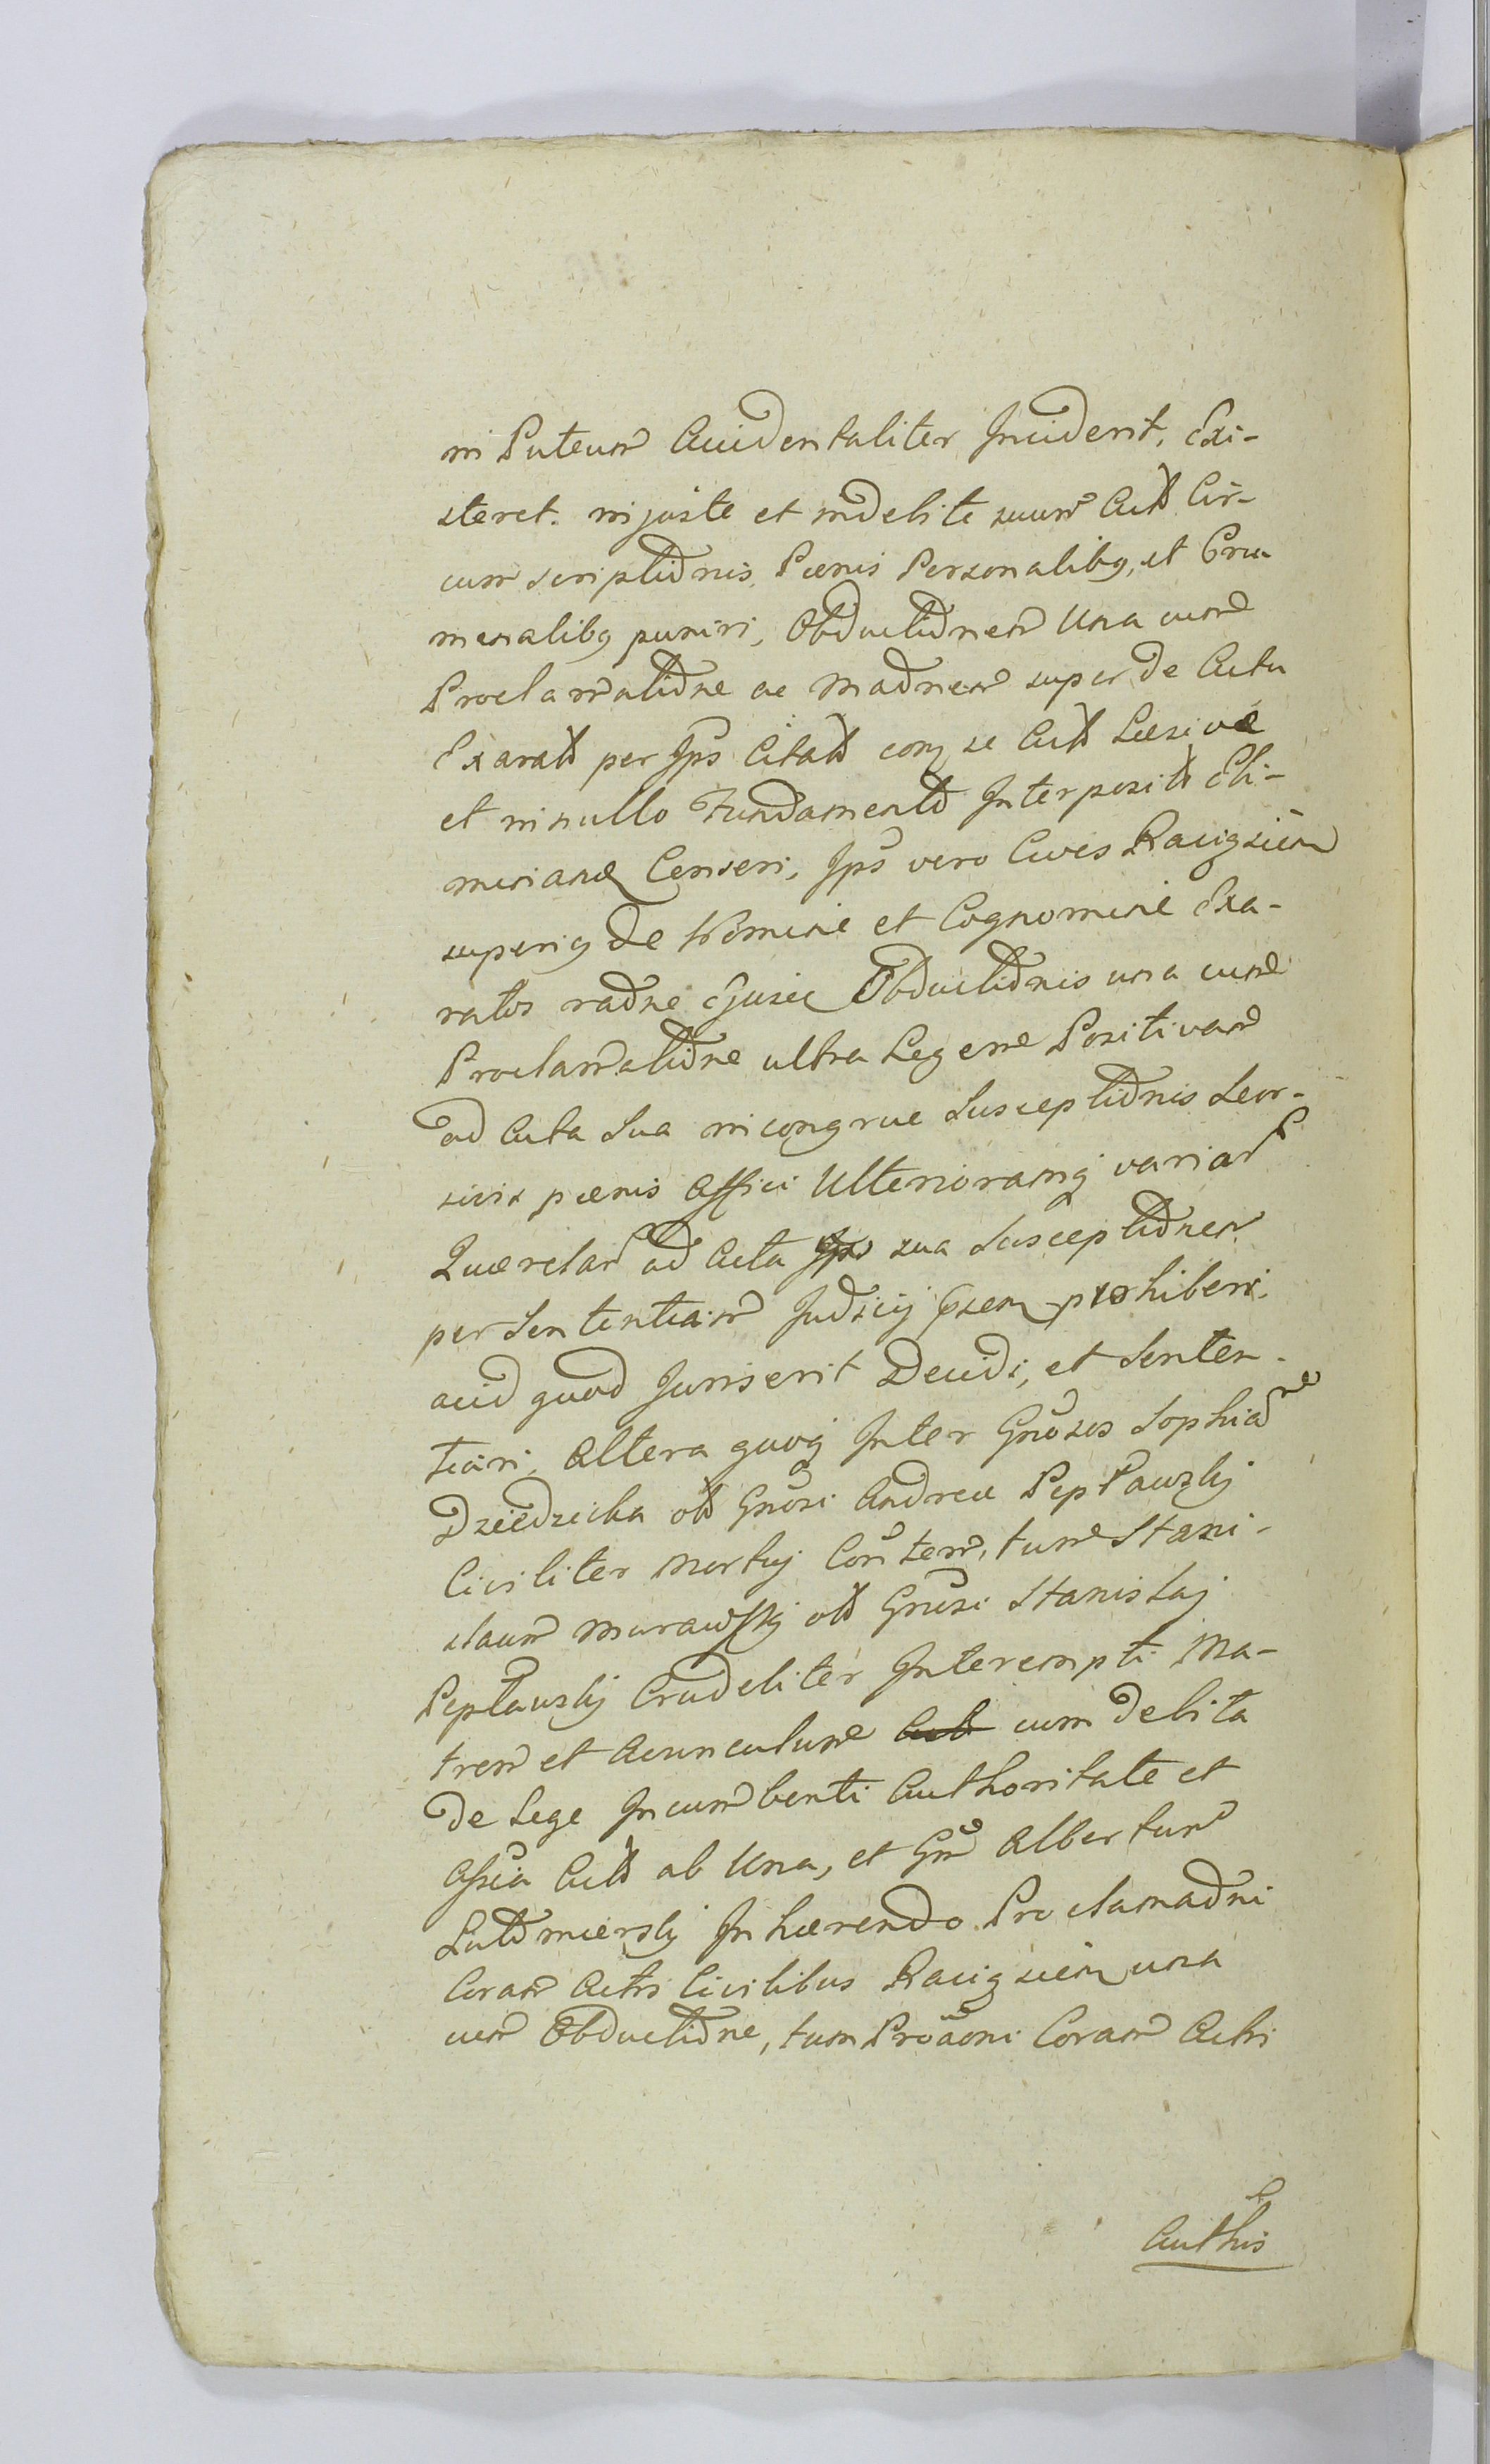 in Puteum Accidentaliter Inciderit, Exi-
steret. injuste et indebite suum Actũ Cir-
cumscriptiõnis, Pœnis Personalibq, et Cru-
menalibq puniri, Obductiõnem Una cum
Proclamatiõne ac Maõnem super de Actu
Exaratõ per Ips Citatõ coram se Actũ Læsivæ
et in nullo Fundamento Interpositũ Eli-
minand Censeri, Ips vero Cives Raciązien
superiq de Nomine et Cognomine Exa-
ratos raõne Ejusm Obductiõnis una cum
Proclamatiõne ultra Legem Positivam
ad Acta Sua incongrue Susceptiõnis Seor-
sivis pœnis Affici Ulterioramq variar
Querelar ad Acta sua Susceptiõnem
per Sententiam Judicij prohiberi.
acid quod Juris erit Decidi, et Senten-
tiari. Altera quoq Inter Gnosos Sophia
Dziedzicka olõ Gnosi Andreæ Pepławski
Civiliter Mortuj Contem, tum Stani-
slaum Murawski olõ Gnosi Stanislaj
Pepławskj Crudeliter Interempti Ma-
trem et Avunculum cum debita
de Lege Incumbenti Authoritate et
Assia Actõ ab Una, et Gnõ Albertum
Lutomierskj Inhærendo Proclamaõni
Coram Actis Civilibus Raciązien una
cum Obductiõne, tum Proaoni Coram Actis
Authis